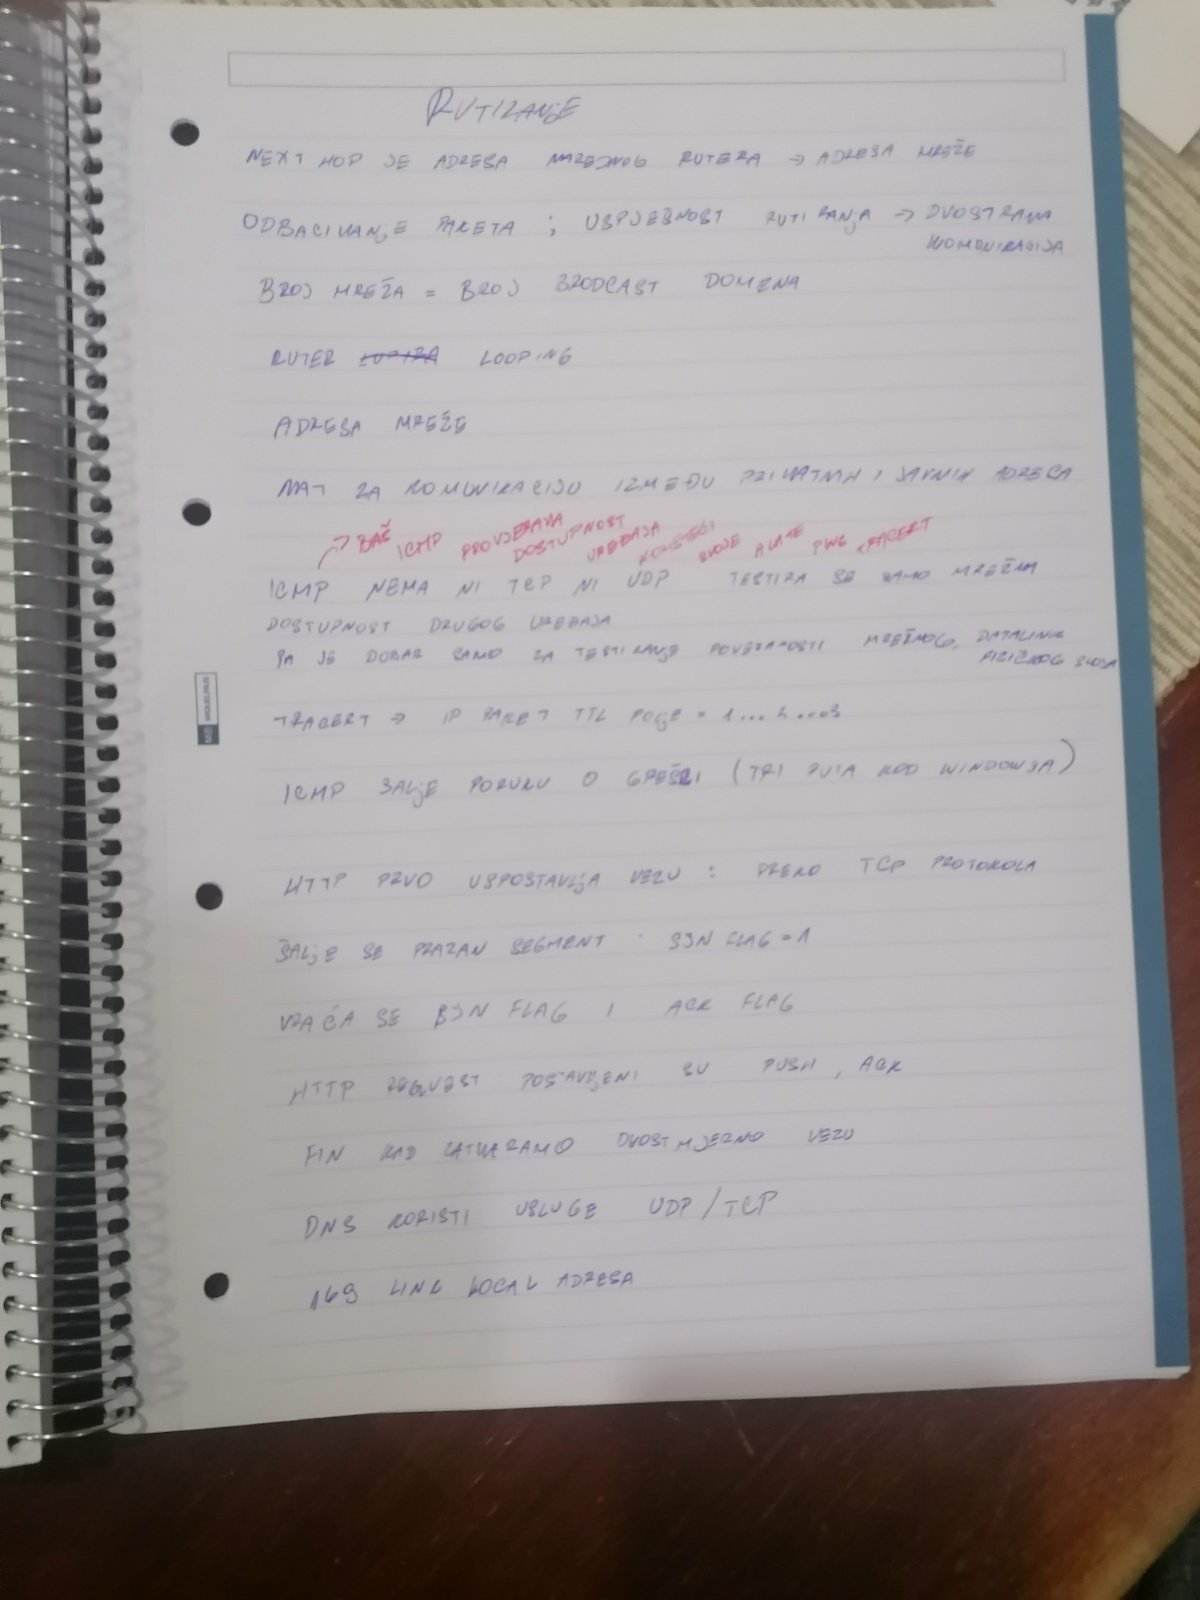 RUTIRANJE
NEXT HOP JE ADRESA NAREDNOG RUTERA → ADRESA MREŽE
ODBACIVANJE PAKETA ; USPJEŠNOST RUTIRANJA → DVOSTRANA
KOMUNIKACIJA
BROJ MREŽA = BROJ BRODCAST DOMENA
RUTER LOOPING
ADRESA MREŽE
NAT ZA KOMUNIKACIJU IZMEĐU PRIVATNIH I JAVNIH ADRESA
→ BAŠ ICMP PROVJERAVA DOSTUPNOST UREĐAJA KORISTEĆI SVOJE ALATE PING TRACERT
ICMP NEMA NI TCP NI UDP TESTIRA SE SAMO MREŽNA
DOSTUPNOST DRUGOG UREĐAJA
PA JE DOBAR SAMO ZA TESTIRANJE POVEZANOSTI MREŽNOG, DATALINK
FIZIČKOG SLOJA
TRACERT → IP PAKET TTL POLJE = 1...
ICMP ŠALJE PORUKU O GREŠCI (TRI PUTA KOD WINDOWSA)
HTTP PRVO USPOSTAVLJA VEZU : PREKO TCP PROTOKOLA
ŠALJE SE PRAZAN SEGMENT SYN FLAG = 1
VRAĆA SE SYN FLAG I ACK FLAG
HTTP REQUEST POSTAVLJENI SU PUSH, ACK
FIN KAD ZATVARAMO DVOSTMJERNO VEZU
DNS KORISTI USLUGE UDP/TCP
169 LINK LOCAL ADRESA